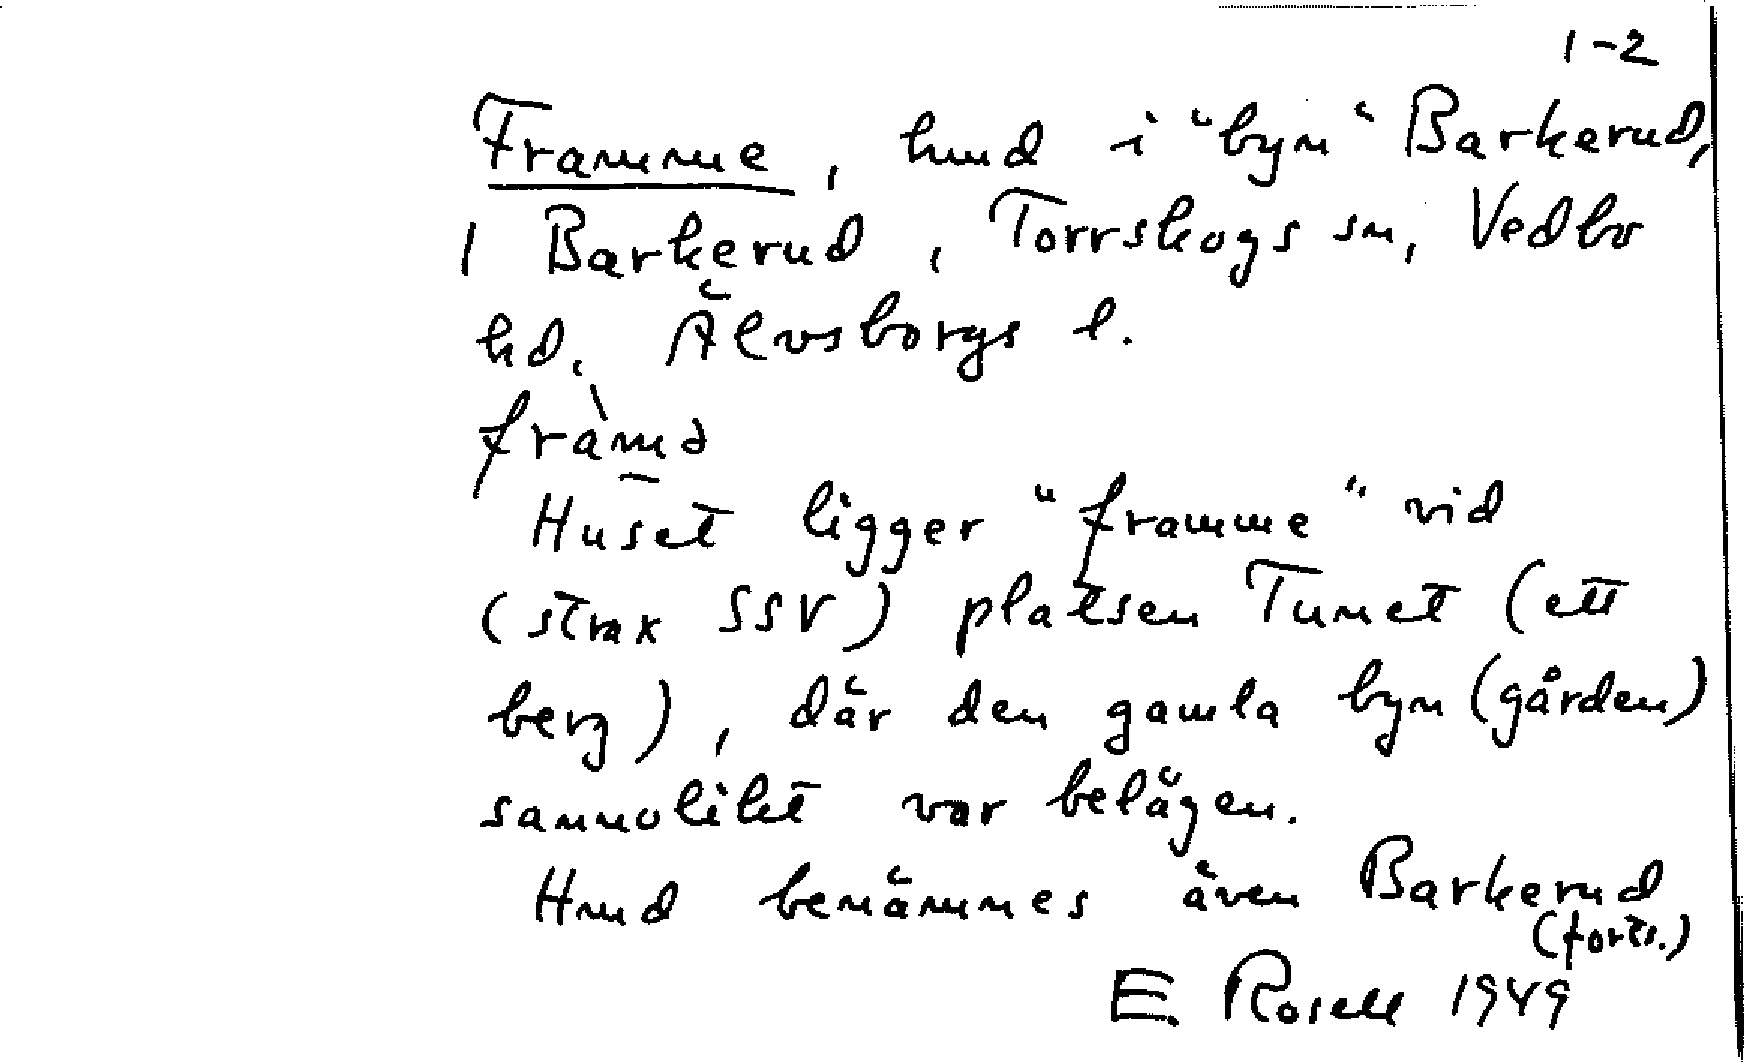 1-2
Framme, hmd i "byn" Barkerud,
1 Barkerud, Torrskogs sn, Vedbo
hd, Älvsborgs l.
fràmə
Huset ligger "framme" vid
(strax SSV) platsen Tunet (ett
berg), där den gamla byn (gården)
sannolikt var belägen.
Hmd benämnes även Barkerud
(forts.)
E. Rosell 1949